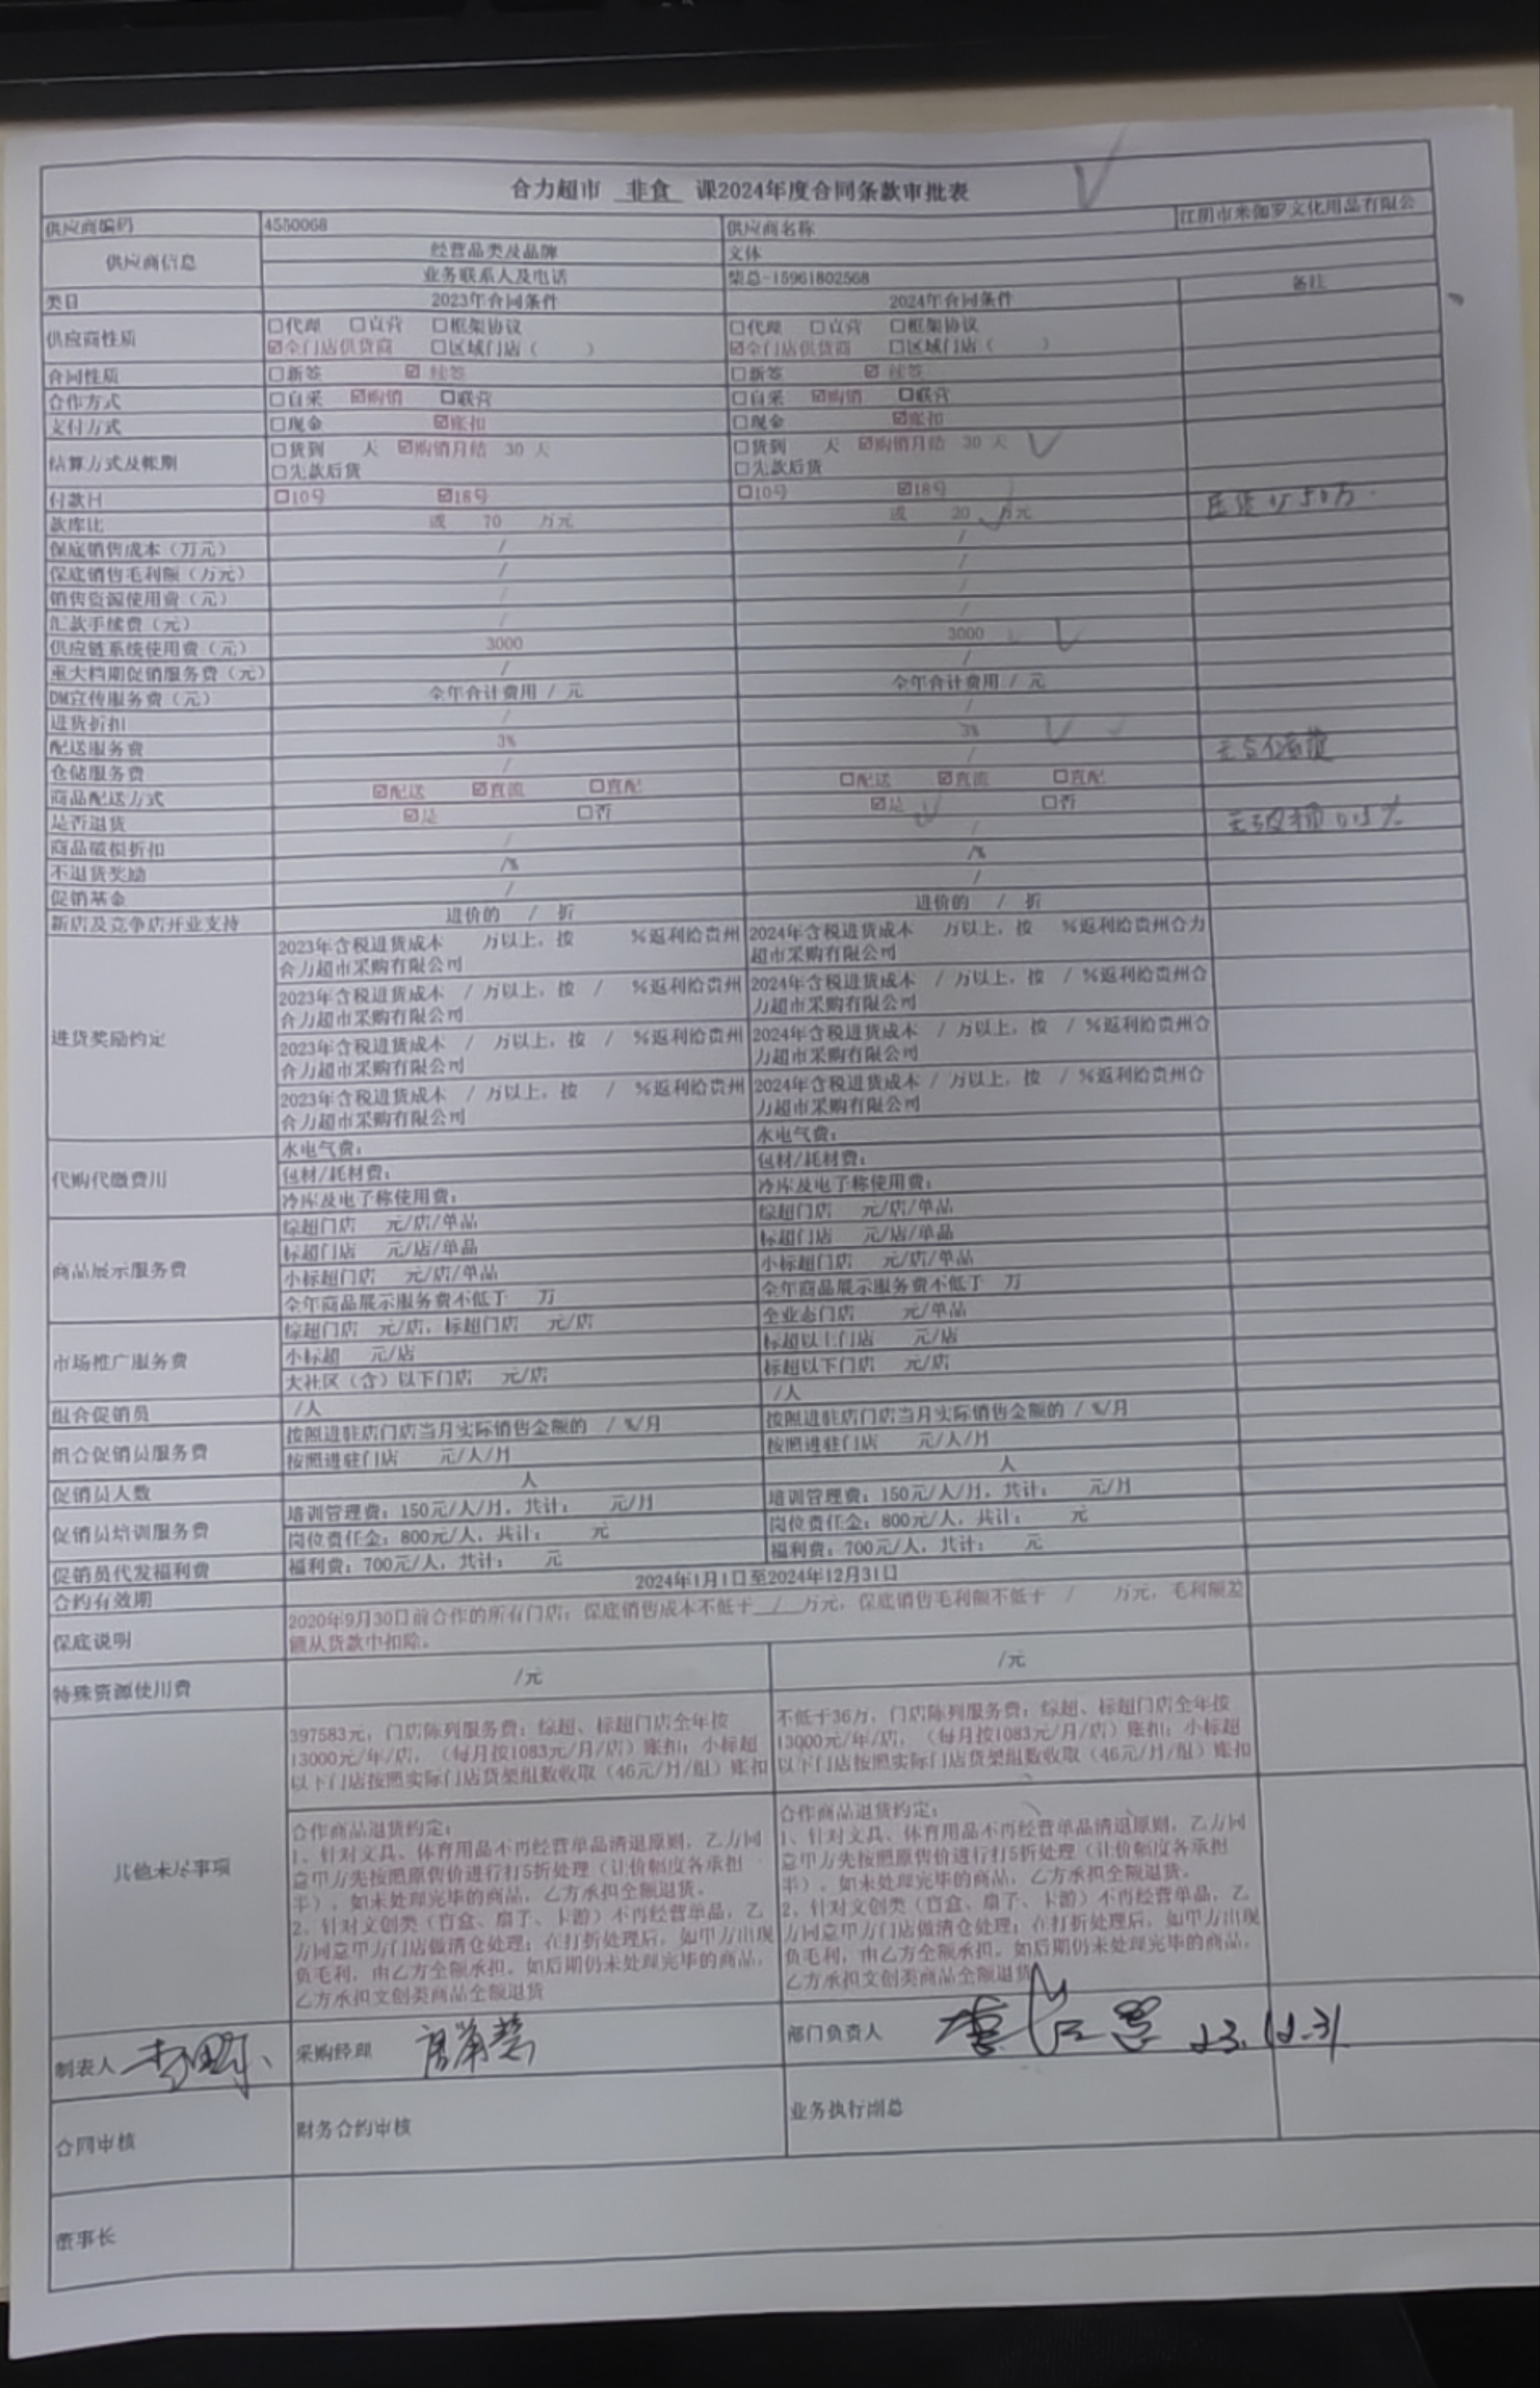 合力超市 非食 课2024年度合同条款审批表
供应商编码 4550068 供应商名称 江阴市米伽罗文化用品有限公
供应商信息 经营品类及品牌 文体
业务联系人及电话 柴总-15961802568
类目 2023年合同条件 2024年合同条件 备注
供应商性质 □代理 □直营 □框架协议 □代理 □直营 □框架协议
☑全门店供货商 □区域门店（ ） ☑全门店供货商 □区域门店（ ）
合同性质 □新签 ☑续签 □新签 ☑续签
合作方式 □自采 ☑购销 □联营 □自采 ☑购销 □联营
支付方式 □现金 ☑账扣 □现金 ☑账扣
结算方式及帐期 □货到 天 ☑购销月结 30 天 □货到 天 ☑购销月结 30 天
□先款后货 □先款后货
付款日 □10号 ☑18号 □10号 ☑18号
款库比 或 70 万元 或 20 万元
保底销售成本（万元） / /
保底销售毛利额（万元） / /
销售资源使用费（元） / /
汇款手续费（元） / /
供应链系统使用费（元） 3000 3000
重大档期促销服务费（元） / /
DM宣传服务费（元） 全年合计费用 / 元 全年合计费用 / 元
进货折扣 / /
配送服务费 3% 3%
仓储服务费 / /
商品配送方式 ☑配送 ☑直流 □直配 □配送 ☑直流 □直配
是否退货 ☑是 □否 ☑是 □否
商品破损折扣 / /
不退货奖励 /% /%
促销基金 / /
新店及竞争店开业支持 进价的 / 折 进价的 / 折
进货奖励约定
2023年含税进货成本 万以上，按 %返利给贵州 2024年含税进货成本 万以上，按 %返利给贵州合力
合力超市采购有限公司 超市采购有限公司
2023年含税进货成本 / 万以上，按 / %返利给贵州 2024年含税进货成本 / 万以上，按 / %返利给贵州合
合力超市采购有限公司 力超市采购有限公司
2023年含税进货成本 / 万以上，按 / %返利给贵州 2024年含税进货成本 / 万以上，按 / %返利给贵州合
合力超市采购有限公司 力超市采购有限公司
2023年含税进货成本 / 万以上，按 / %返利给贵州 2024年含税进货成本 / 万以上，按 / %返利给贵州合
合力超市采购有限公司 力超市采购有限公司
代购代缴费用
水电气费： 水电气费：
包材/耗材费： 包材/耗材费：
冷库及电子称使用费： 冷库及电子称使用费：
商品展示服务费
综超门店 元/店/单品 综超门店 元/店/单品
标超门店 元/店/单品 标超门店 元/店/单品
小标超门店 元/店/单品 小标超门店 元/店/单品
全年商品展示服务费不低于 万 全年商品展示服务费不低于 万
市场推广服务费
综超门店 元/店，标超门店 元/店 全业态门店 元/单品
小标超 元/店 标超以上门店 元/店
大社区（含）以下门店 元/店 标超以下门店 元/店
组合促销员 /人 /人
组合促销员服务费
按照进驻店门店当月实际销售金额的 / %/月 按照进驻店门店当月实际销售金额的 / %/月
按照进驻门店 元/人/月 按照进驻门店 元/人/月
促销员人数 人 人
促销员培训服务费
培训管理费：150元/人/月，共计： 元/月 培训管理费：150元/人/月，共计： 元/月
岗位责任金：800元/人，共计： 元 岗位责任金：800元/人，共计： 元
促销员代发福利费 福利费：700元/人，共计： 元 福利费：700元/人，共计： 元
合约有效期 2024年1月1日至2024年12月31日
保底说明 2020年9月30日前合作的所有门店：保底销售成本不低于 / 万元，保底销售毛利额不低于 / 万元，毛利额差
额从货款中扣除。
特殊资源使用费 /元 /元
其他未尽事项
397583元，门店陈列服务费：综超、标超门店全年按 不低于36万，门店陈列服务费：综超、标超门店全年按
13000元/年/店，（每月按1083元/月/店）账扣；小标超 13000元/年/店，（每月按1083元/月/店）账扣；小标超
以下门店按照实际门店货架组数收取（46元/月/组）账扣 以下门店按照实际门店货架组数收取（46元/月/组）账扣
合作商品退货约定： 合作商品退货约定：
1、针对文具、体育用品不再经营单品清退原则，乙方同 1、针对文具、体育用品不再经营单品清退原则，乙方同
意甲方先按照原售价进行打5折处理（让价幅度各承担一 意甲方先按照原售价进行打5折处理（让价幅度各承担一
半），如未处理完毕的商品，乙方承担全额退货。 半），如未处理完毕的商品，乙方承担全额退货。
2、针对文创类（盲盒、扇子、卡游）不再经营单品，乙 2、针对文创类（盲盒、扇子、卡游）不再经营单品，乙
方同意甲方门店做清仓处理；在打折处理后，如甲方出现 方同意甲方门店做清仓处理；在打折处理后，如甲方出现
负毛利，由乙方全额承担。如后期仍未处理完毕的商品， 负毛利，由乙方全额承担。如后期仍未处理完毕的商品，
乙方承担文创类商品全额退货 乙方承担文创类商品全额退货
制表人 采购经理 部门负责人 23.12.31
合同审核 财务合约审核 业务执行副总
董事长